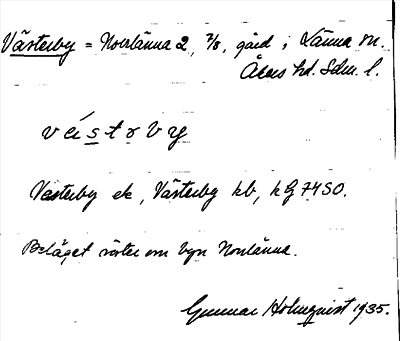 Västerby = Norrlänna 2, 7/8, gård i Länna sn.
Åkers hd. Sdm. l.
vä́strby
Vesterby ek, Västerby kb, kG 74SO.
Beläget väster om byn Norrlänna.
Gunnar Holmquist 1935.